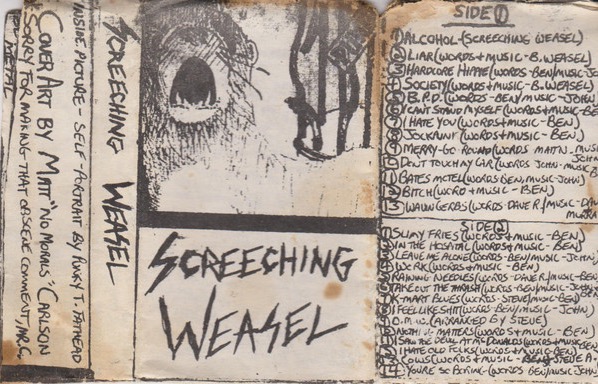 *SORRY FOR MAKING THAT OBSCENE COMMENT, MR. G.
METAL
COVER ART BY MATT "NO MORALS" CARLSON
INSIDE PICTURE - SELF-PORTRAIT BY PUNKY T. FATHEAD
SCREECHING WEASEL
SCREECHING
WEASEL
SIDE ①
① ALCOHOL-(SCREECHING WEASEL)
② LIAR (WORDS+MUSIC-B.WEASEL)
③ HARDCORE HIPPIE (WORDS-BEN/MUSIC-JO
④ SOCIETY (WORDS+MUSIC-B.WEASEL)
⑤ B.P.D. (WORDS-BEN/MUSIC-JOHN)
⑥ I CAN'T STAND MYSELF (WORDS+MUSIC-BE
⑦ I HATE YOU (WORDS+MUSIC-BEN)
⑧ JOCKAUNT (WORDS+MUSIC-BEN)
⑨ MERRY-GO-ROUND (WORDS MATT N. MUSI
DON'T TOUCH MY CAR (WORDS JOHN-MUSIC
BATES MOTEL (WORDS BEN/MUSIC-JOHN)
BITCH (WORD+MUSIC-BEN)
WAVINGERBS (WORDS-DAVE R./MUSIC-DAV
SIDE ②
SLIMY FRIES (WORDS+MUSIC-BEN)
IN THE HOSPITAL (WORDS+MUSIC-BEN)
LEAVE ME ALONE (WORDS-BEN/MUSIC-JOHN)
WORK (WORDS+MUSIC-BEN)
RAINING NEEDLES (WORDS-DAVE R/MUSIC-BEN
TAKE OUT THE TRASH (WORDS+MUSIC-BEN
K-MART BLUES (WORDS-STEVE/MUSIC-BEN
I FEEL LIKE SHIT (WORDS-BEN/MUSIC-JOHN)
D.M.W. (ARRANGED BY STEVE)
NOTHING MATTERS (WORDS+MUSIC-BEN)
I SAW THE DEVIL AT McDONALDS (WORDS+MUSIC-
I HATE OLD FOLKS (WORDS+MUSIC-BEN)
COWS (WORDS+MUSIC-BEN+STEVE
YOU'RE SO BORING-(WORDS BEN/MUSIC JOHN